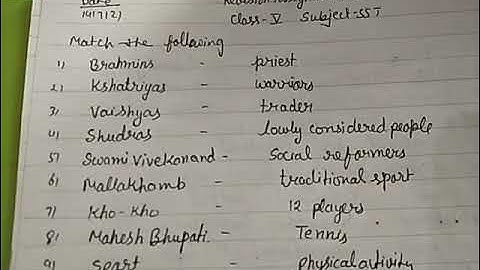 Date
14/7/21
Revision
Class-V Subject-SST
Match the following
1) Brahmins - priest
2) Kshatriyas - warriors
3) Vaishyas - trader
4) Shudras - lowly considered people
5) Swami Vivekanand - Social reformers
6) Mallakhomb - traditional sport
7) Kho-Kho - 12 players
8) Mahesh Bhupati - Tennis
9) Sport - physical activity